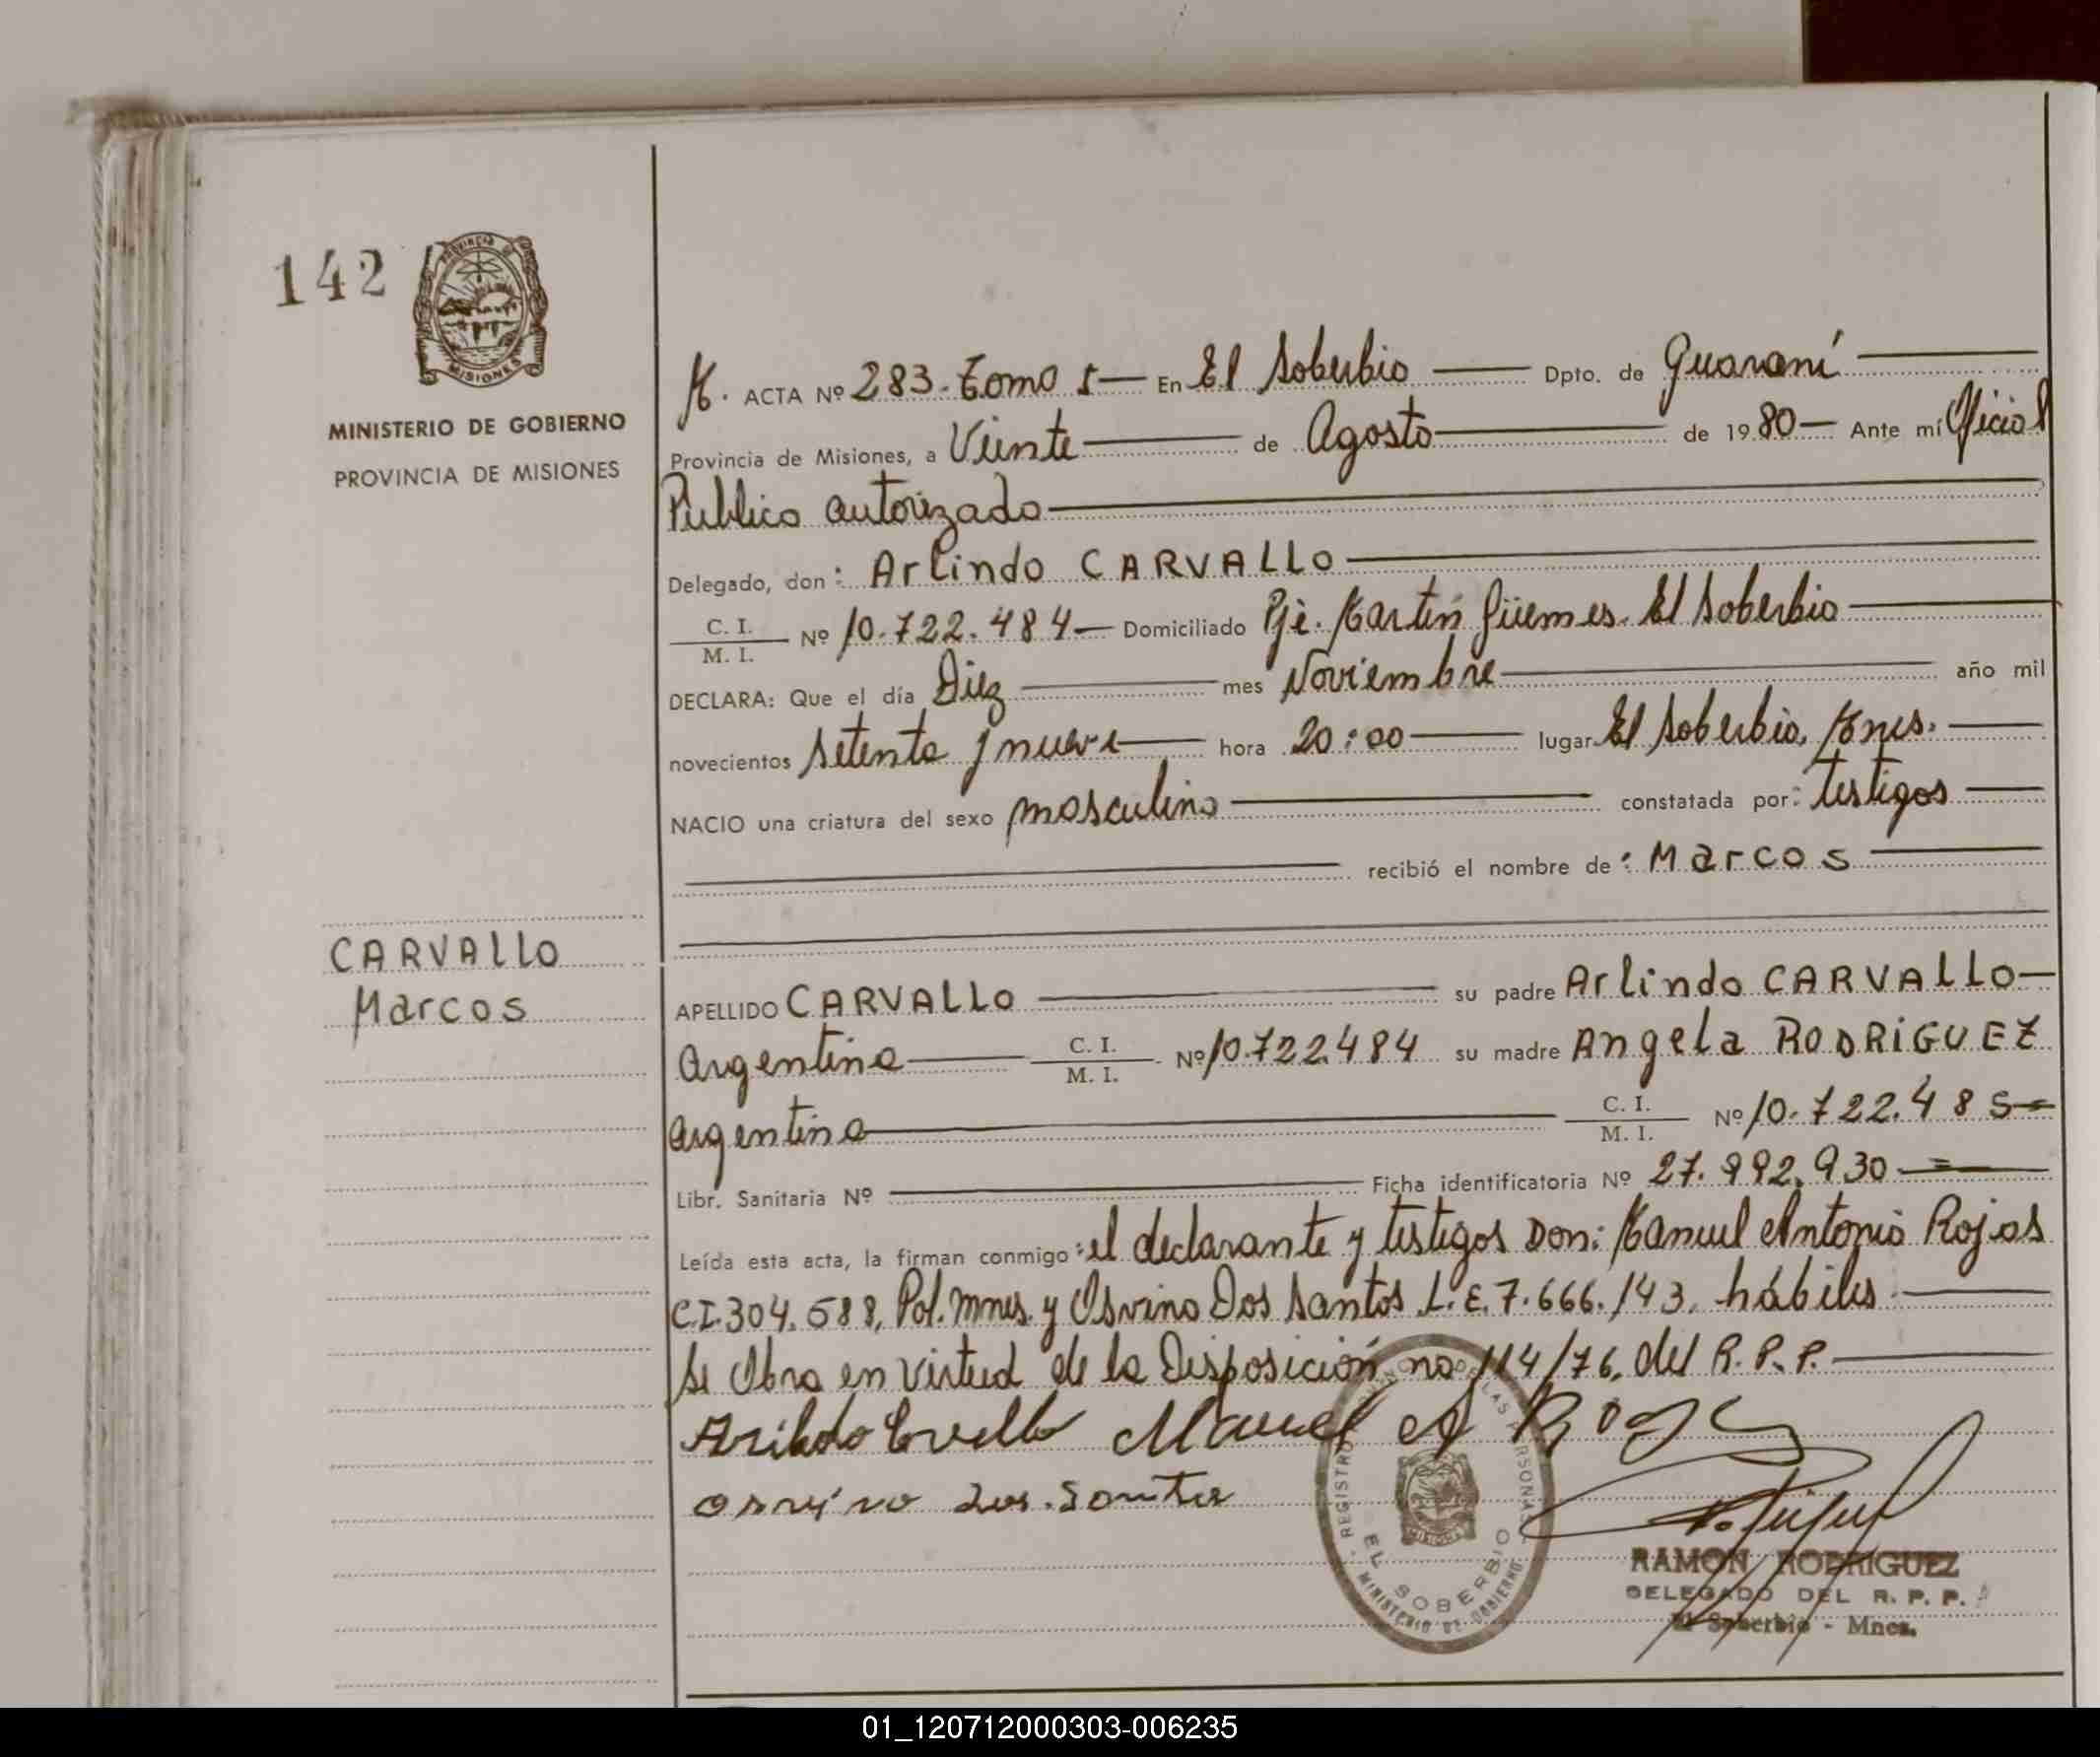 142
MISIONES
MINISTERIO DE GOBIERNO
PROVINCIA DE MISIONES
M. ACTA Nº 283. Tomo 5 En El Soberbio Dpto. de Guaraní
Provincia de Misiones, a Veinte de Agosto de 1980 Ante mí Oficial
Publico autorizado
Delegado, don: Arlindo CARVALLO
C. I.
M. I. Nº 10.722.484 Domiciliado Pje. Martín Güemes. El Soberbio
DECLARA: Que el día Diez mes Noviembre año mil
novecientos setenta y nueve hora 20:00 lugar El Soberbio, Mnes.
NACIO una criatura del sexo masculino constatada por: testigos
recibió el nombre de: Marcos
CARVALLO
Marcos
APELLIDO CARVALLO su padre Arlindo CARVALLO
argentina C. I.
M. I. Nº 10.722.484 su madre Angela RODRIGUEZ
argentina C. I.
M. I. Nº 10.722.485
Libr. Sanitaria Nº Ficha identificatoria Nº 27.992.930
Leída esta acta, la firman conmigo: el declarante y testigos Don: Manuel Antonio Rojas
C.I. 304.588, Pol. Mnes. y Osvino Dos Santos L.E. 7.666.143, hábiles
Se Obra en virtud de la Disposición no 114/76, del R.P.P.
Manuel A Rojas
osvino dos santos
REGISTRO PROVINCIAL DE LAS PERSONAS
EL SOBERBIO
MINISTERIO DE GOBIERNO
RAMON RODRIGUEZ
DELEGADO DEL R. P. P.
El Soberbio - Mnes.
01_120712000303-006235